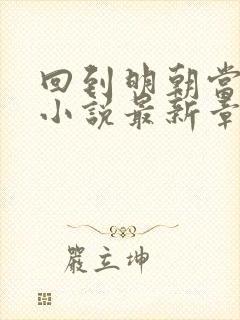 回到明朝当
小说最新章
严立坤